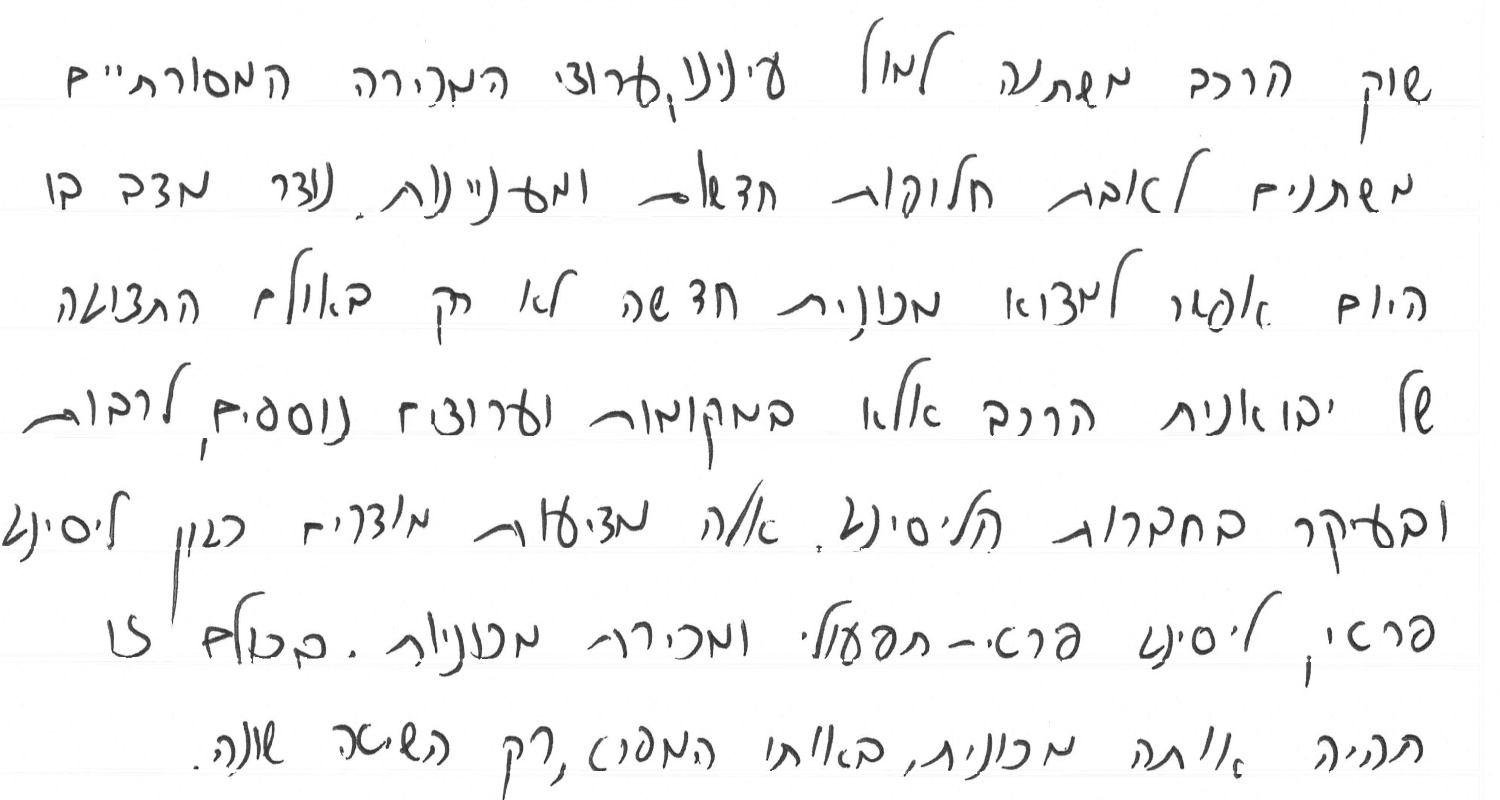 שוק הרכב משתנה למול עינינו, ערוצי המכירה המסורתיים
משתנים לאבת חלוקות חדשות ומעניינות. נוצר מצב בו
היום אפשר למצוא מכונית חדשה לא רק באולם התצוגה
של יבואנית הרכב אלא במקומות וערוצים נוספים, לרבות
ובעיקר בחברות הליסינג. אלה מציעות מודרים כגון ליסינג
פראי, ליסינג פראי-תפעולי ומכירת מכוניות. בכולם זו
תהיה אותה מכונית, באותו המפרט, רק השיטה שונה.